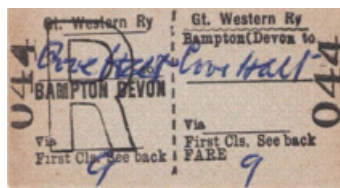 044
Gt. Western Ry
Cove Halt
R
BAMPTON DEVON
Via
First Cls. See back
9
Gt. Western Ry
Bampton(Devon to
Cove Halt
Via
First Cls. See back
FARE 9
044